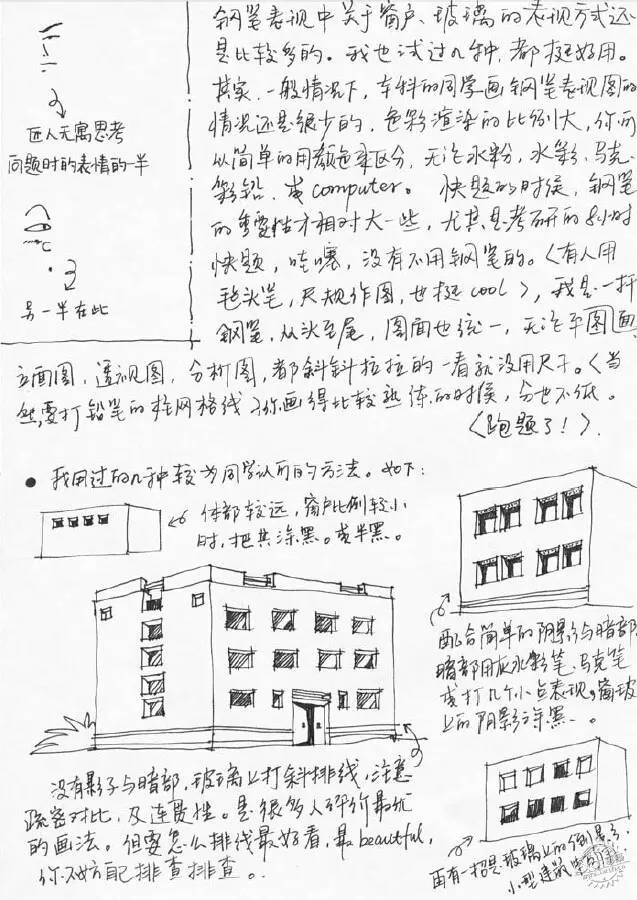 钢笔表现中关于窗户、玻璃的表现方式还
是比较多的。我也试过几种，都挺好用。
其实，一般情况下，本科的同学画钢笔表现图的
情况还是很少的，色彩渲染的比例大，你可
以简单的用颜色来区分，无论水粉，水彩，马克、
彩铅，或computer。快题的时候，钢笔
的重要性才相对大一些，尤其是考研的8小时
快题，哇噻，没有不用钢笔的。〈有人用
毛头笔，尺规作图，也挺cool〉，我是一杆
钢笔，从头至尾，图面也统一，无论平图面
立面图，透视图，分析图，都斜斜拉拉的一看就没用尺子。〈当
然，要打铅笔的柱网格线〉你画得比较熟练的时候，分也不低。
〈跑题了！〉
匠人无寓思考
问题时的表情的一半
另一半在此
● 我用过的几种较为同学认可的方法。如下：
体部较远，窗户比例较小
时，把其涂黑。或半黑。
配合简单的阴影与暗部，
暗部用灰水彩笔、马克笔
或打几个小点表现。窗玻
上的阴影涂黑。
没有影子与暗部，玻璃上打斜排线，注意
疏密对比，及连贯性。是很多人评价最优
的画法。但要怎么排线最好看，最beautiful，
你不妨自己排查排查。
再有一招是玻璃上的倒影，
小型建筑